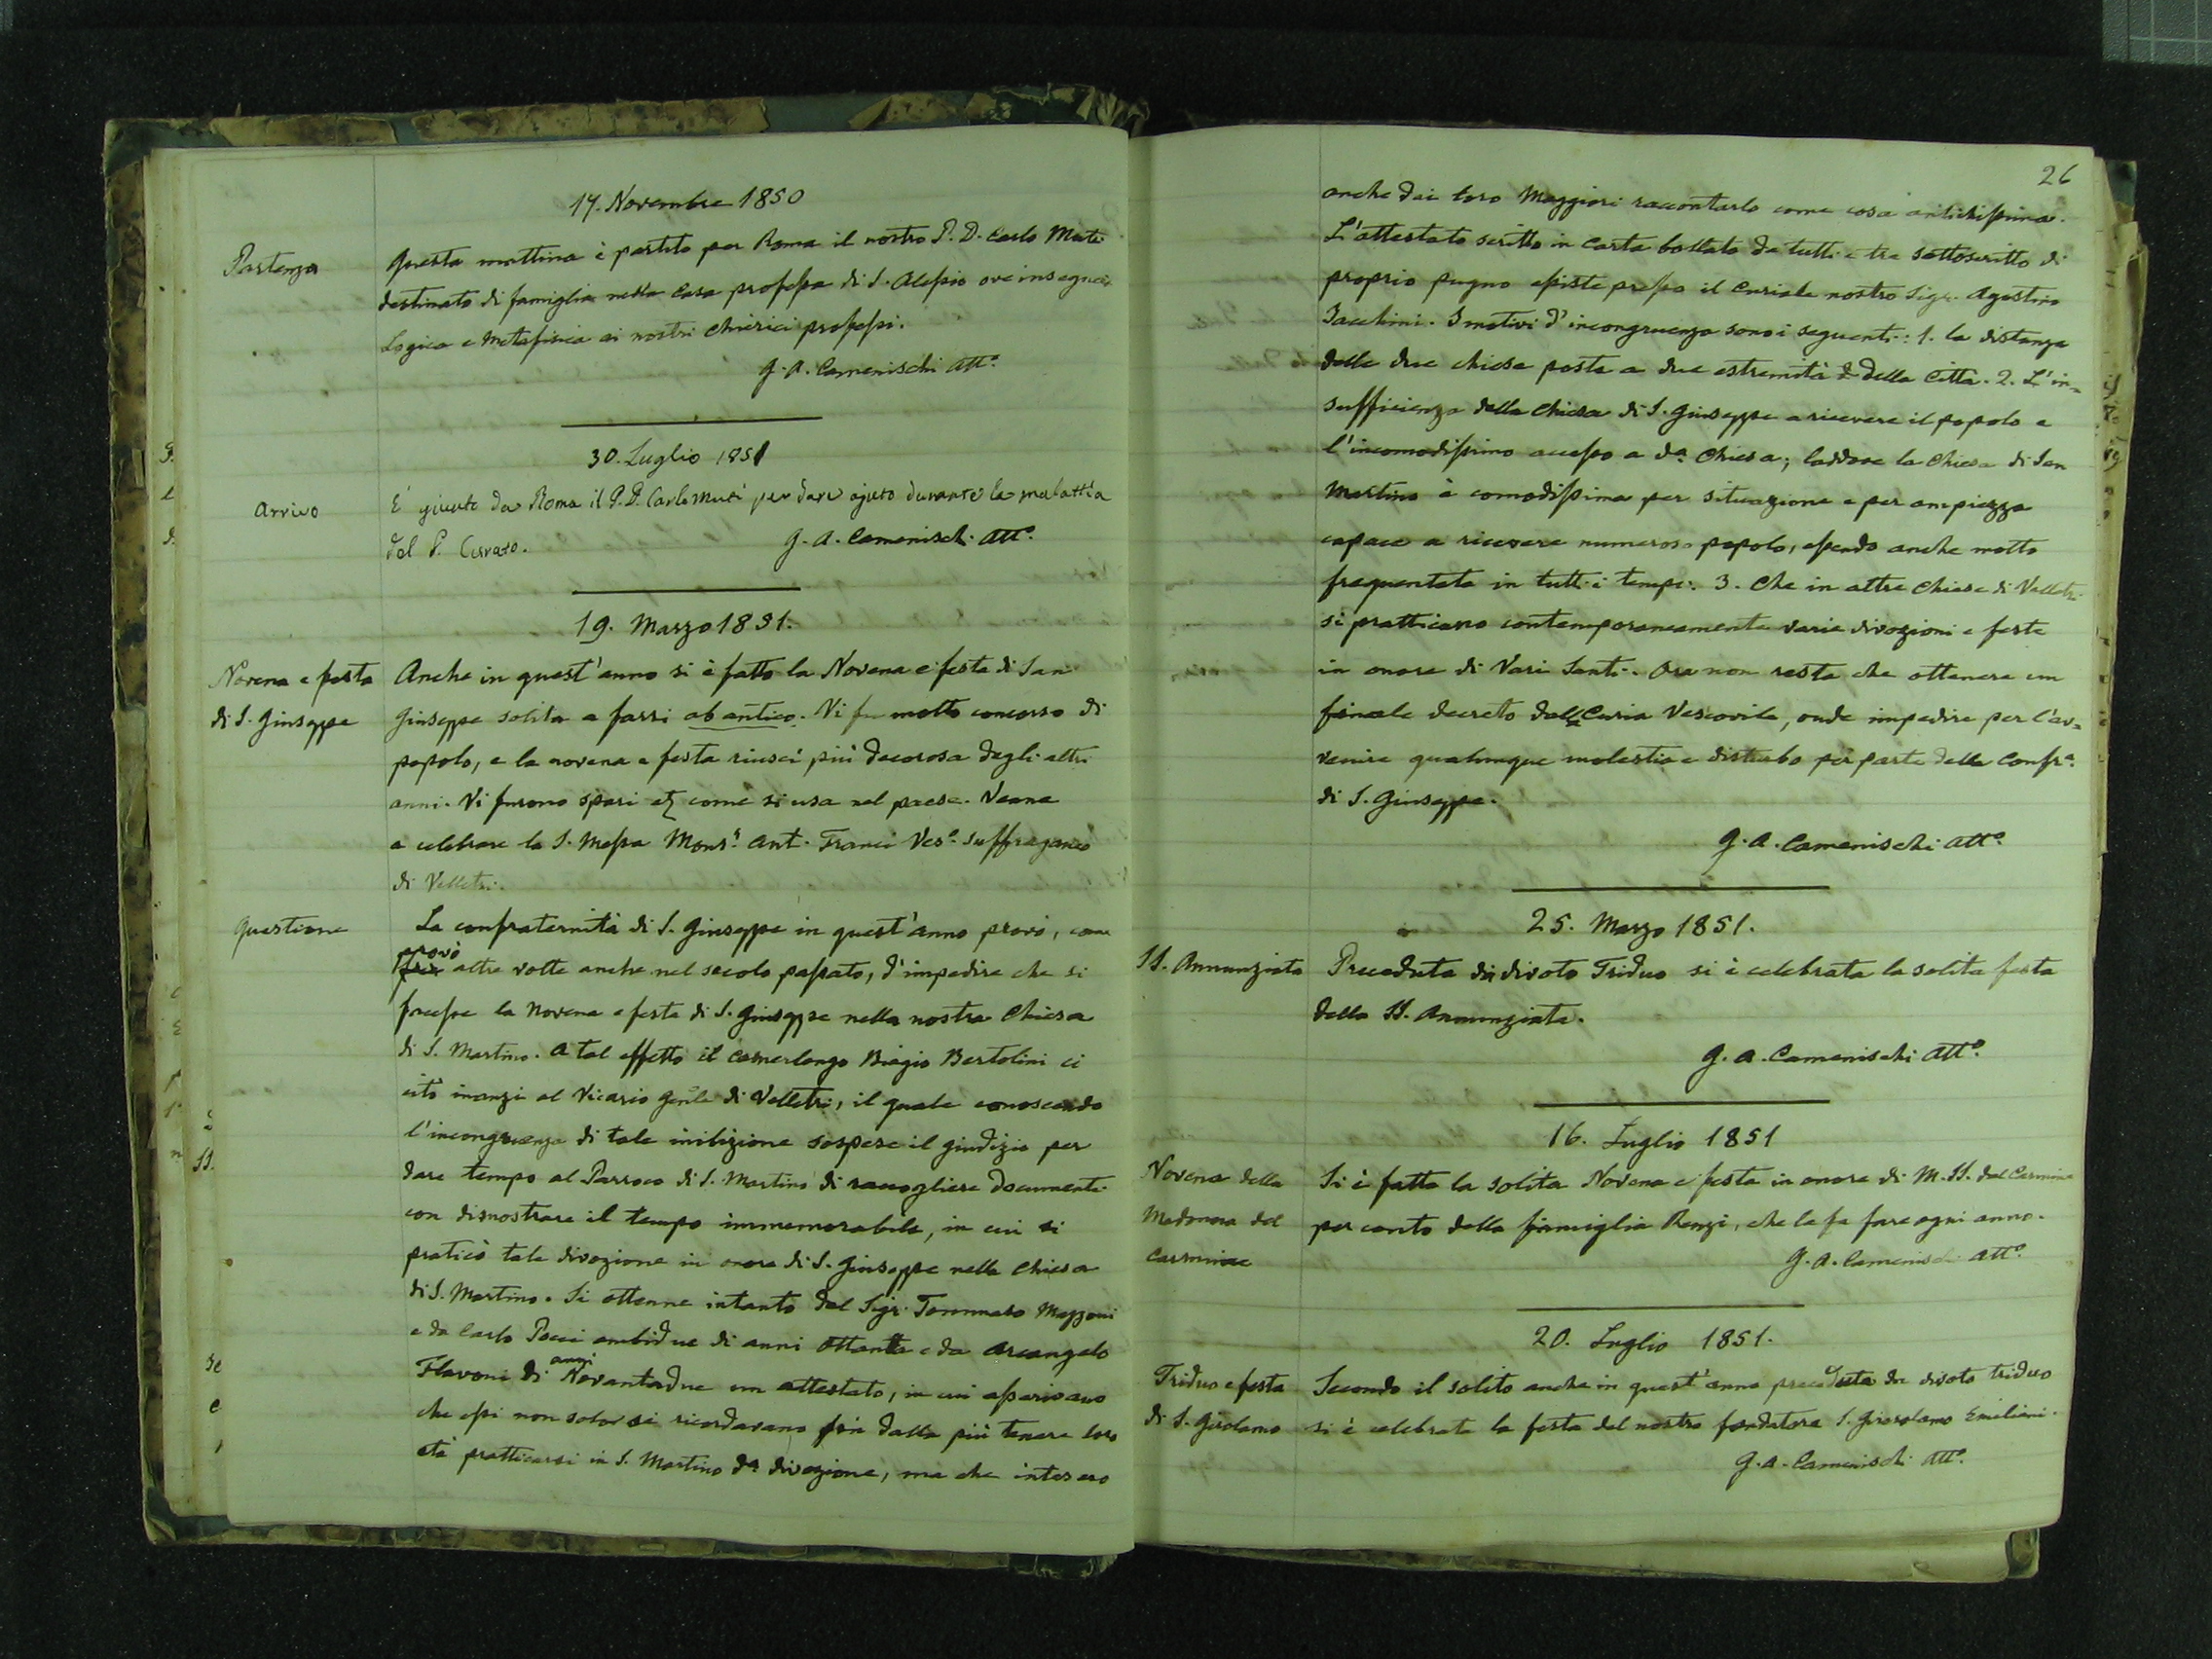 17. Novembre 1850
Partenza
Questa mattina è partito per Roma il nostro P. D. Carlo Muti
destinato di famiglia nella Casa professa di S. Alessio ove insegnerà
Logica e Metafisica ai nostri Chierici professi.
G. A. Camenischi Att.º
30. Luglio 1851
Arrivo
È giunto da Roma il P. D. Carlo Muti per dare ajuto durante la malattia
del P. Curato.
G. A. Camenischi Att.º
19. Marzo 1851.
Novena e festa
di S. Giuseppe
Anche in quest'anno si è fatto la Novena e festa di San
Giuseppe solita a farsi ab antico. Vi fu molto concorso di
popolo, e la novena e festa riuscì più decorosa degli altri
anni. Vi furono spari etc come si usa nel paese. Venne
a celebrare la S. Messa Mons.r Ant. Franci Ves.º Suffraganeo
di Velletri.
Questione
La confraternità di S. Giuseppe in quest'anno provò, come
provò
altre volte anche nel secolo passato, d'impedire che si
facesse la Novena e festa di S. Giuseppe nella nostra Chiesa
di S. Martino. A tal effetto il Camerlengo Biagio Bertolini ci
citò inanzi al Vicario Genle di Velletri, il quale conoscendo
l'incongruenza di tale inibizione sospese il giudizio per
dare tempo al Parroco di S. Martino di raccogliere documenti
con dismostrare il tempo immemorabile, in cui si
praticò tale divozione in onore di S. Giuseppe nella Chiesa
di S. Martino. Si ottenne intanto dal Sigr. Tommaso Mazzoni
e da Carlo Pocci ambidue di anni ottanta e da Arcangelo
anni
Flavoni di Novantadue un attestato, in cui asserivano
che essi non solo si ricordavano fin dalla più tenera loro
età pratticarsi in S. Martino da divozione, ma che intesero
26
anche dai loro Maggiori raccontarlo come cosa antichissima.
L'attestato scritto in carta bollata da tutti e tre sottoscritto di
proprio pugno esiste presso il Curiale nostro Sigr. Agostino
Jacchini. I motivi d'incongruenza sono i seguenti: 1. la distanza
delle due chiese poste a due estremità della Città. 2. L'in=
sufficienza della Chiesa di S. Giuseppe a ricevere il popolo e
l'incomodissimo accesso a da Chiesa; laddove la Chiesa di San
Martino è comodissima per situazione e per ampiezza
capace a ricevere numeroso popolo, essendo anche molto
frequentata in tutti i tempi. 3. Che in altre Chiese di Velletri
si pratticano contemporaneamente varie divozioni e feste
in onore di Vari Santi. Ora non resta che ottenere un
finale decreto dalla Curia Vescovile, onde impedire per l'av=
venire qualunque molestia e disturbo per parte della Confr.a
di S. Giuseppe.
G. A. Camenischi Att.º
25. Marzo 1851.
SS. Annunziata
Preceduta da divoto Triduo si è celebrata la solita festa
della SS. Annunziata.
G. A. Camenischi Att.º
16. Luglio 1851
Novena della
Madonna del
Carmine
Si è fatta la solita Novena e festa in onore di M. SS. del Carmine
per conto della famiglia Renzi, che la fa fare ogni anno.
G. A. Camenischi Att.º
20. Luglio 1851.
Triduo e festa
di S. Girolamo
Secondo il solito anche in quest'anno preceduta da divoto triduo
si è celebrata la festa del nostro fondatore S. Girolamo Emiliani.
G. A. Camenischi Att.º